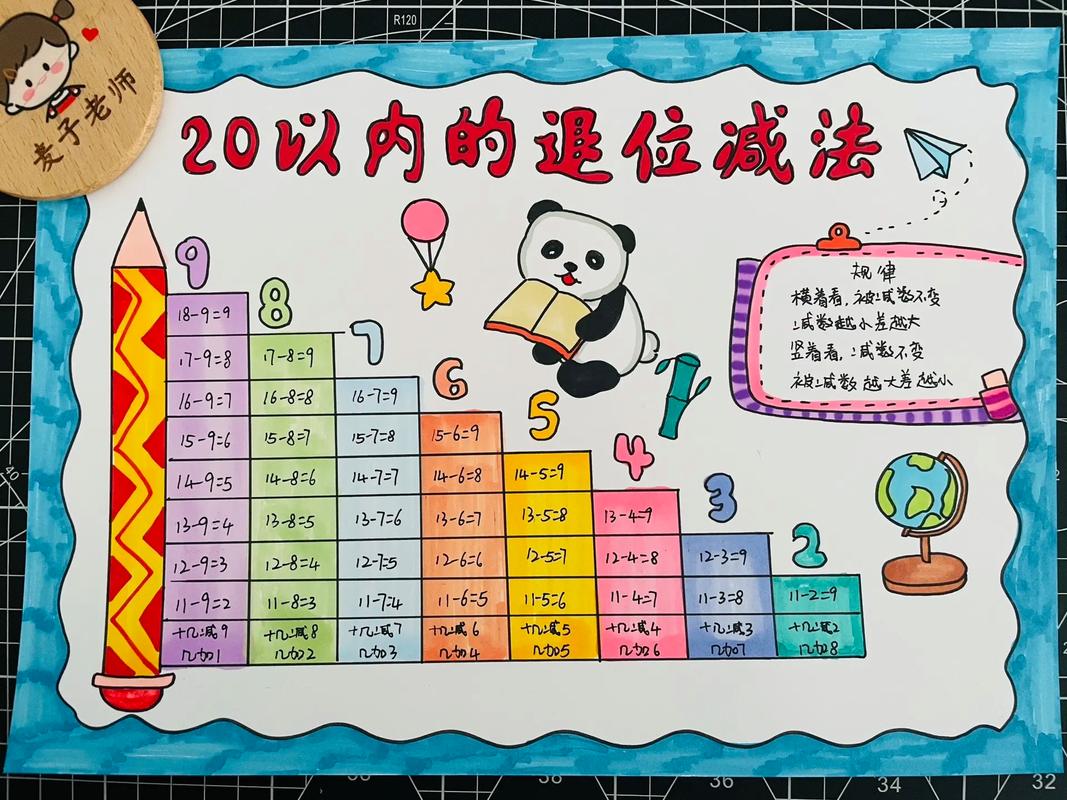 R120
麦子老师
20以内的退位减法
9
8
7
6
5
4
3
2
规律
横着看,被减数不变
减数越小差越大
竖着看,减数不变
被减数越大差越小
18-9=9
17-9=8 17-8=9
16-9=7 16-8=8 16-7=9
15-9=6 15-8=7 15-7=8 15-6=9
14-9=5 14-8=6 14-7=7 14-6=8 14-5=9
13-9=4 13-8=5 13-7=6 13-6=7 13-5=8 13-4=9
12-9=3 12-8=4 12-7=5 12-6=6 12-5=7 12-4=8 12-3=9
11-9=2 11-8=3 11-7=4 11-6=5 11-5=6 11-4=7 11-3=8 11-2=9
十几减9 十几减8 十几减7 十几减6 十几减5 十几减4 十几减3 十几减2
几加1 几加2 几加3 几加4 几加5 几加6 几加7 几加8
40
38 36 34 32